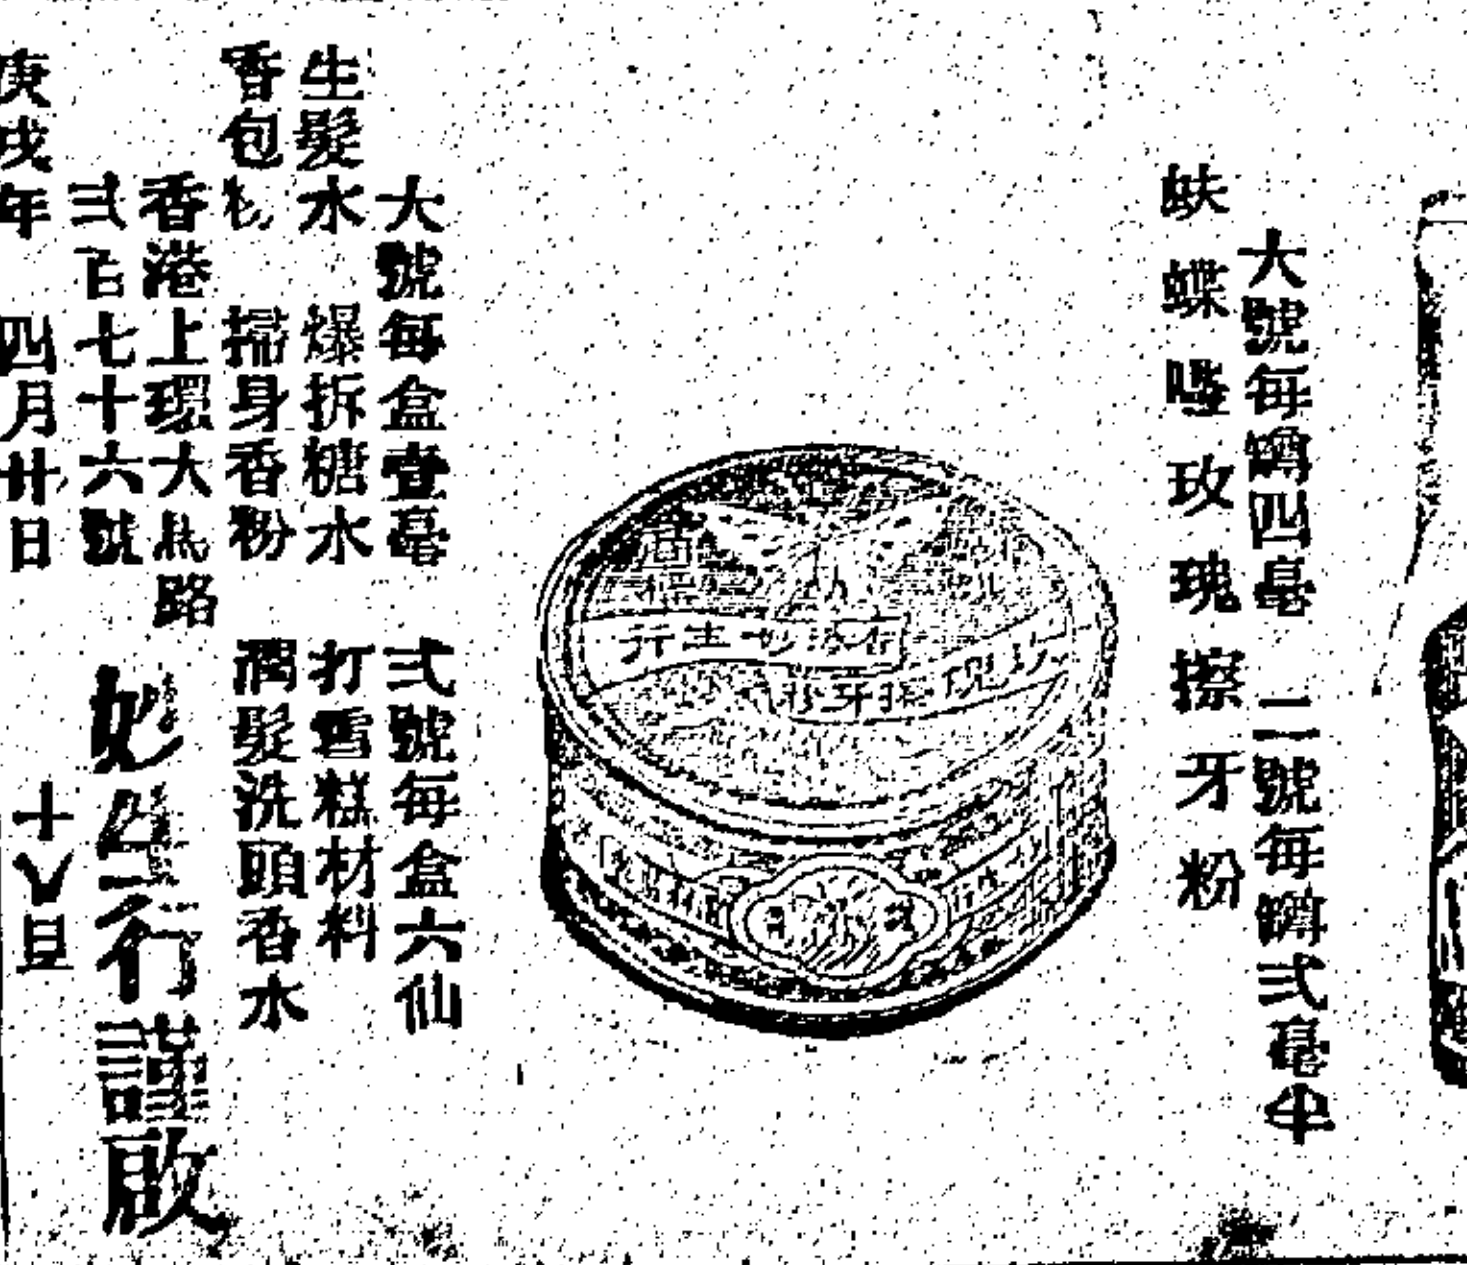 大號每罇四毫　二號每罇弍毫半
蚨蝶嘜玫瑰擦牙粉
香港妙生行
玫瑰擦牙粉
大號每盒壹毫　弍號每盒六仙
生髮水　爆拆糖水　打雪糕材料
香包　掃身香粉　潤髮洗頭香水
香港上環大馬路
弍百七十六號
妙生行謹啟
庚戌年　四月廿日　十八旦